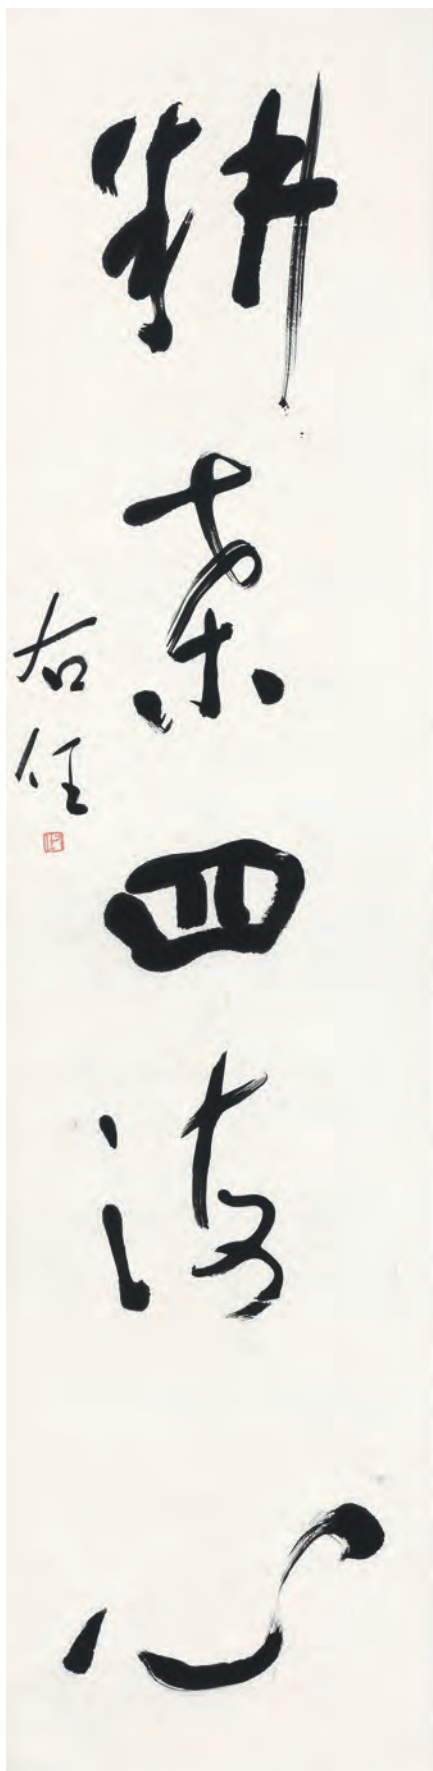 耕桑四海心
右任